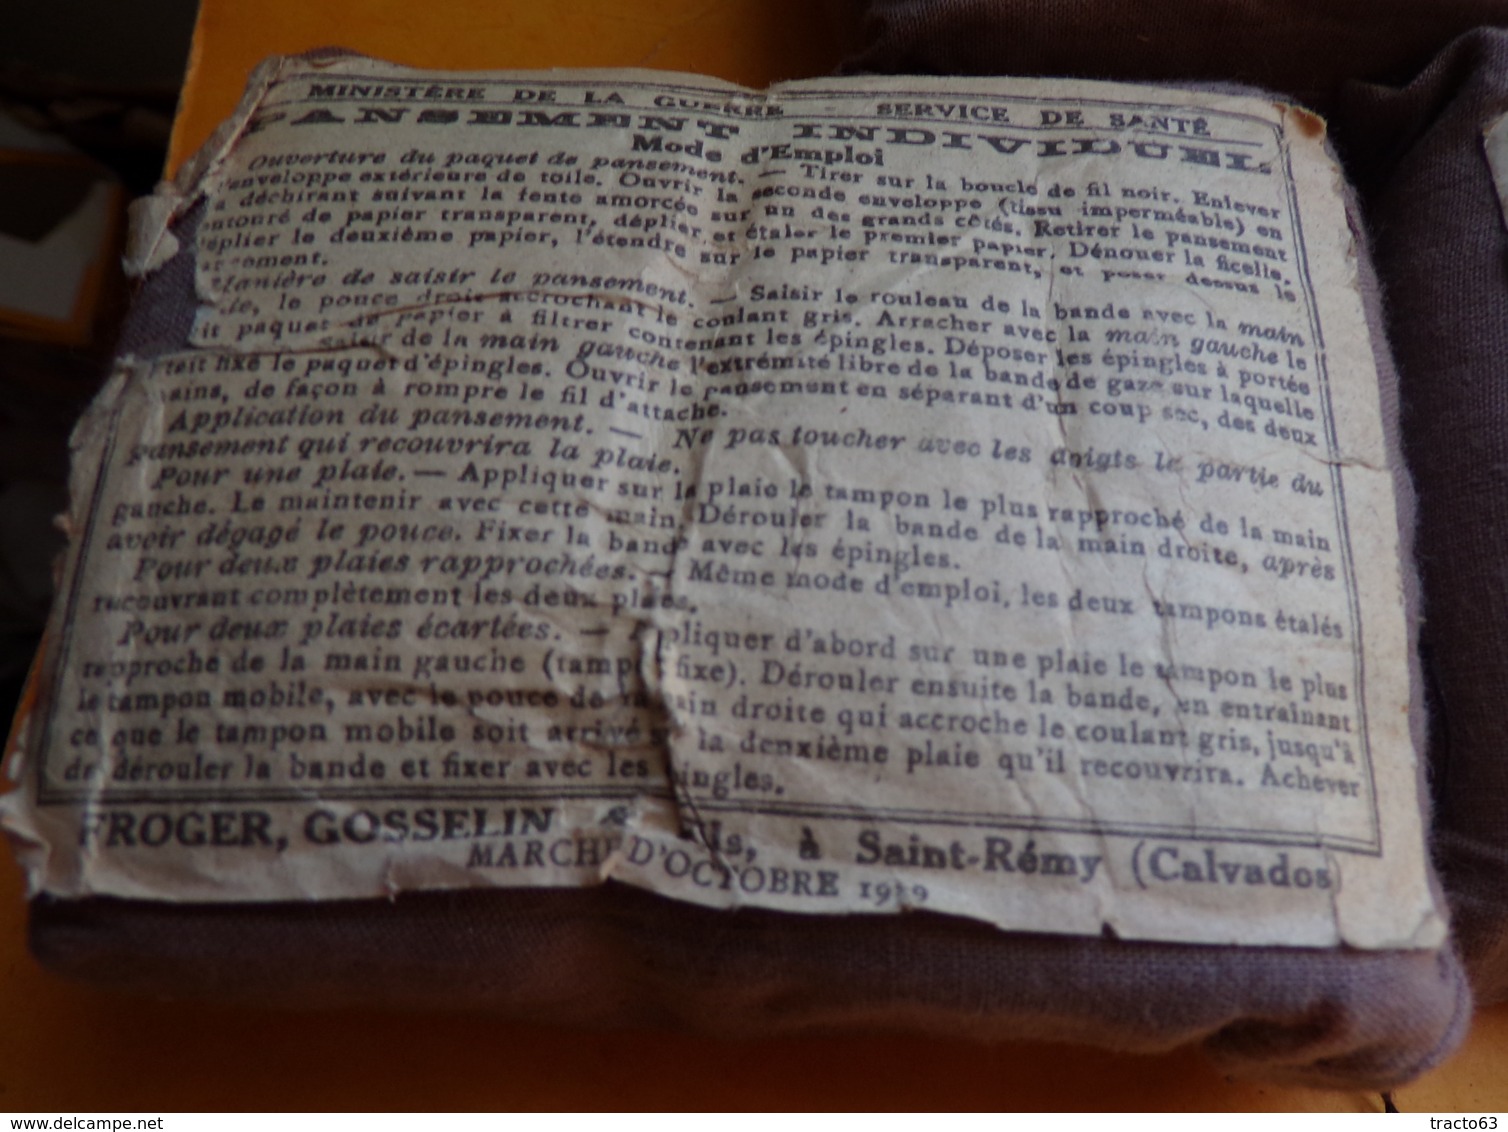 MINISTÈRE DE LA GUERRE - SERVICE DE SANTÉ
PANSEMENT INDIVIDUEL
Mode d'Emploi
Ouverture du paquet de pansement. — Tirer sur la boucle de fil noir. Enlever
l'enveloppe extérieure de toile. Ouvrir la seconde enveloppe (tissu imperméable) en
la déchirant suivant la fente amorcée sur un des grands côtés. Retirer le pansement
entouré de papier transparent, déplier et étaler le premier papier. Dénouer la ficelle.
déplier le deuxième papier, l'étendre sur le papier transparent, et poser dessus le
pansement.
Manière de saisir le pansement. — Saisir le rouleau de la bande avec la main
le pouce droit accrochant le coulant gris. Arracher avec la main gauche le
paquet de papier à filtrer contenant les épingles. Déposer les épingles à portée
saisir de la main gauche l'extrémité libre de la bande de gaze sur laquelle
était fixé le paquet d'épingles. Ouvrir le pansement en séparant d'un coup sec, des deux
mains, de façon à rompre le fil d'attache.
Application du pansement. — Ne pas toucher avec les doigts la partie du
pansement qui recouvrira la plaie.
Pour une plaie. — Appliquer sur la plaie le tampon le plus rapproché de la main
gauche. Le maintenir avec cette main. Dérouler la bande de la main droite, après
avoir dégagé le pouce. Fixer la bande avec les épingles.
Pour deux plaies rapprochées. — Même mode d'emploi, les deux tampons étalés
recouvrant complètement les deux plaies.
Pour deux plaies écartées. — Appliquer d'abord sur une plaie le tampon le plus
rapproché de la main gauche (tampon fixe). Dérouler ensuite la bande, en entraînant
le tampon mobile, avec le pouce de la main droite qui accroche le coulant gris, jusqu'à
ce que le tampon mobile soit arrivé sur la deuxième plaie qu'il recouvrira. Achever
de dérouler la bande et fixer avec les épingles.
FROGER, GOSSELIN & Fils, à Saint-Rémy (Calvados)
MARCHÉ D'OCTOBRE
tracto63